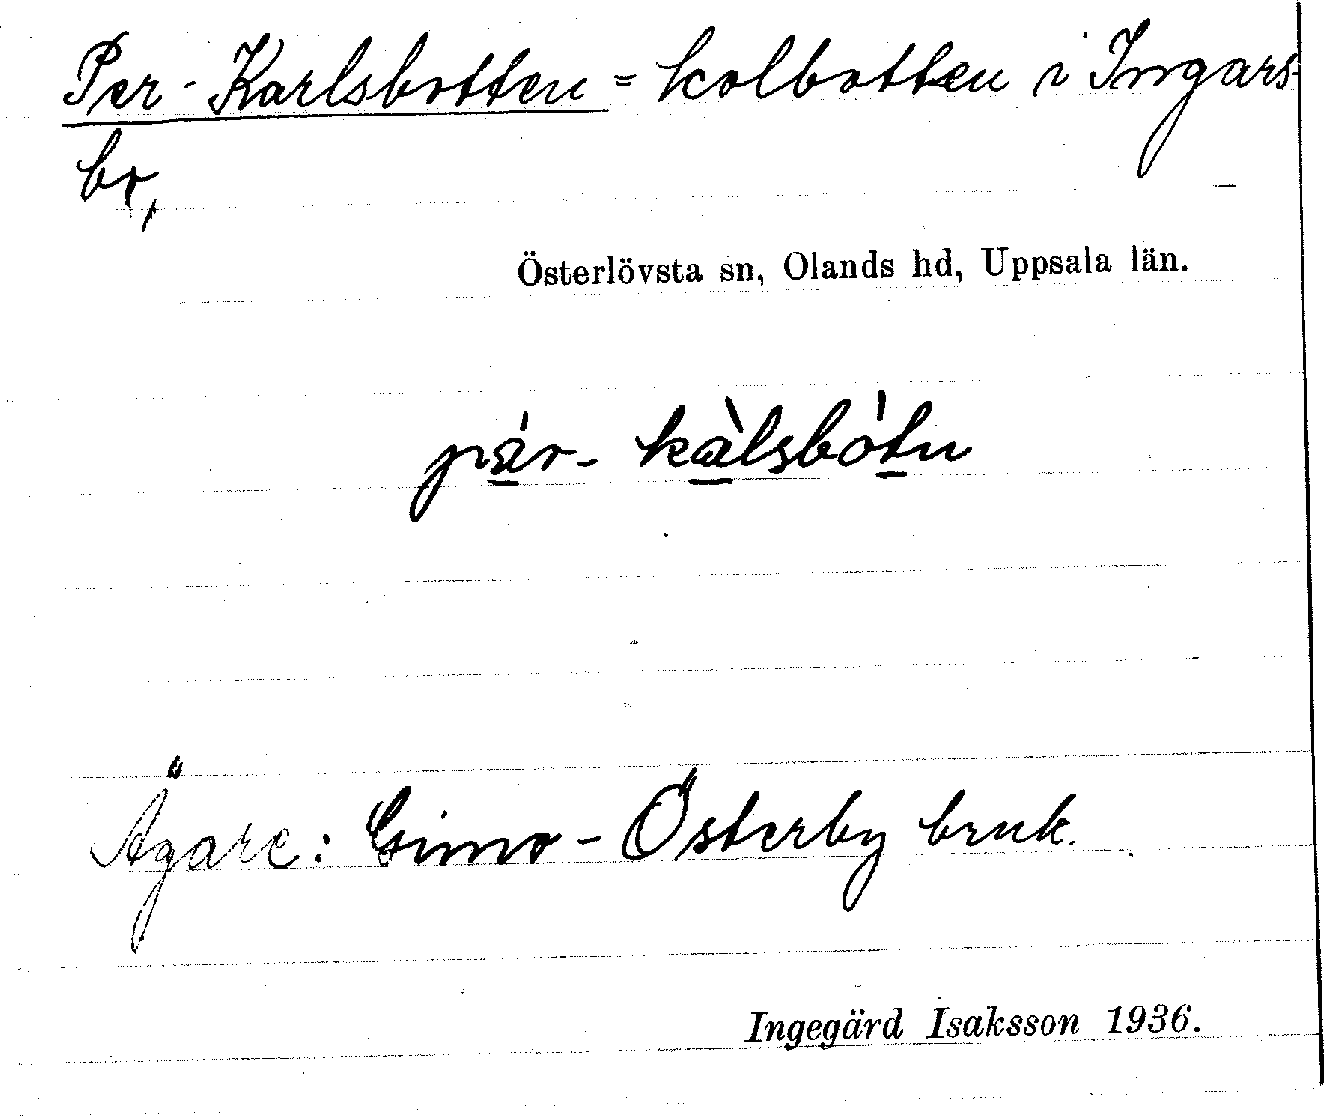 Per-Karlsbotten = kolbotten i Ingars-
br,
Österlövsta sn, Olands hd, Uppsala län.
pär- kàlsbótn
Ägare: Gimo-Österby bruk.
Ingegärd Isaksson 1936.